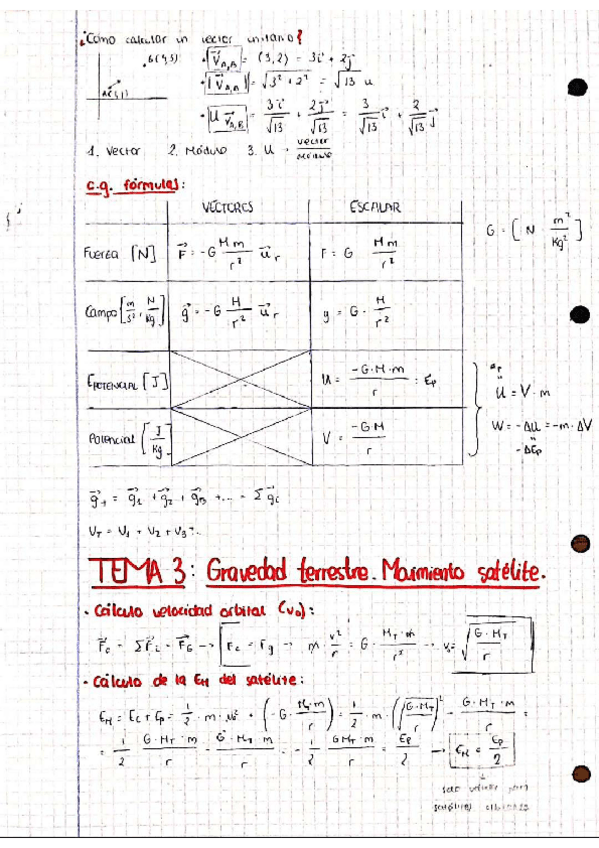 ¿Cómo calcular un vector unitario?
B(4,3)
A(1,1)
· |V⃗A,B| = (3,2) = 3i⃗ + 2j⃗
· |V⃗A,B| = √3² + 2² = √13 u
· |U V⃗A,B| = 3i⃗/√13 + 2j⃗/√13 = 3/√13 i⃗ + 2/√13 j⃗
1. Vector 2. Módulo 3. U = vector/módulo
c.g. fórmulas:
VECTORES ESCALAR
Fuerza [N] F⃗ = -G M m/r² u⃗r F = G M m/r²
G = [N m²/Kg²]
Campo [m/s², N/Kg] g⃗ = -G M/r² u⃗r g = G · M/r²
EPOTENCIAL [J] U = -G·M·m/r = Ep
U = V · m
Potencial [J/Kg] V = -G·M/r
W = -ΔU = -m·ΔV
-ΔEp
g⃗T = g⃗1 + g⃗2 + g⃗3 + ... = Σg⃗i
VT = V1 + V2 + V3 + ..
TEMA 3: Gravedad terrestre. Movimiento satélite.
· Cálculo velocidad orbital (vo):
F⃗c = ΣF⃗i = F⃗G → Fc = Fg → m · v²/r = G · MT · m/r² → vo = √G · MT/r
· Cálculo de la EM del satélite:
EM = Ec + Ep = 1/2 · m · vo² + (-G · MT · m/r) = 1/2 · m · (√G·MT/r)² - G · MT · m/r =
= 1/2 G · MT · m/r - G · MT · m/r = - 1/2 GMT · m/r = Ep/2 → EM = Ep/2
solo válido para
satélites